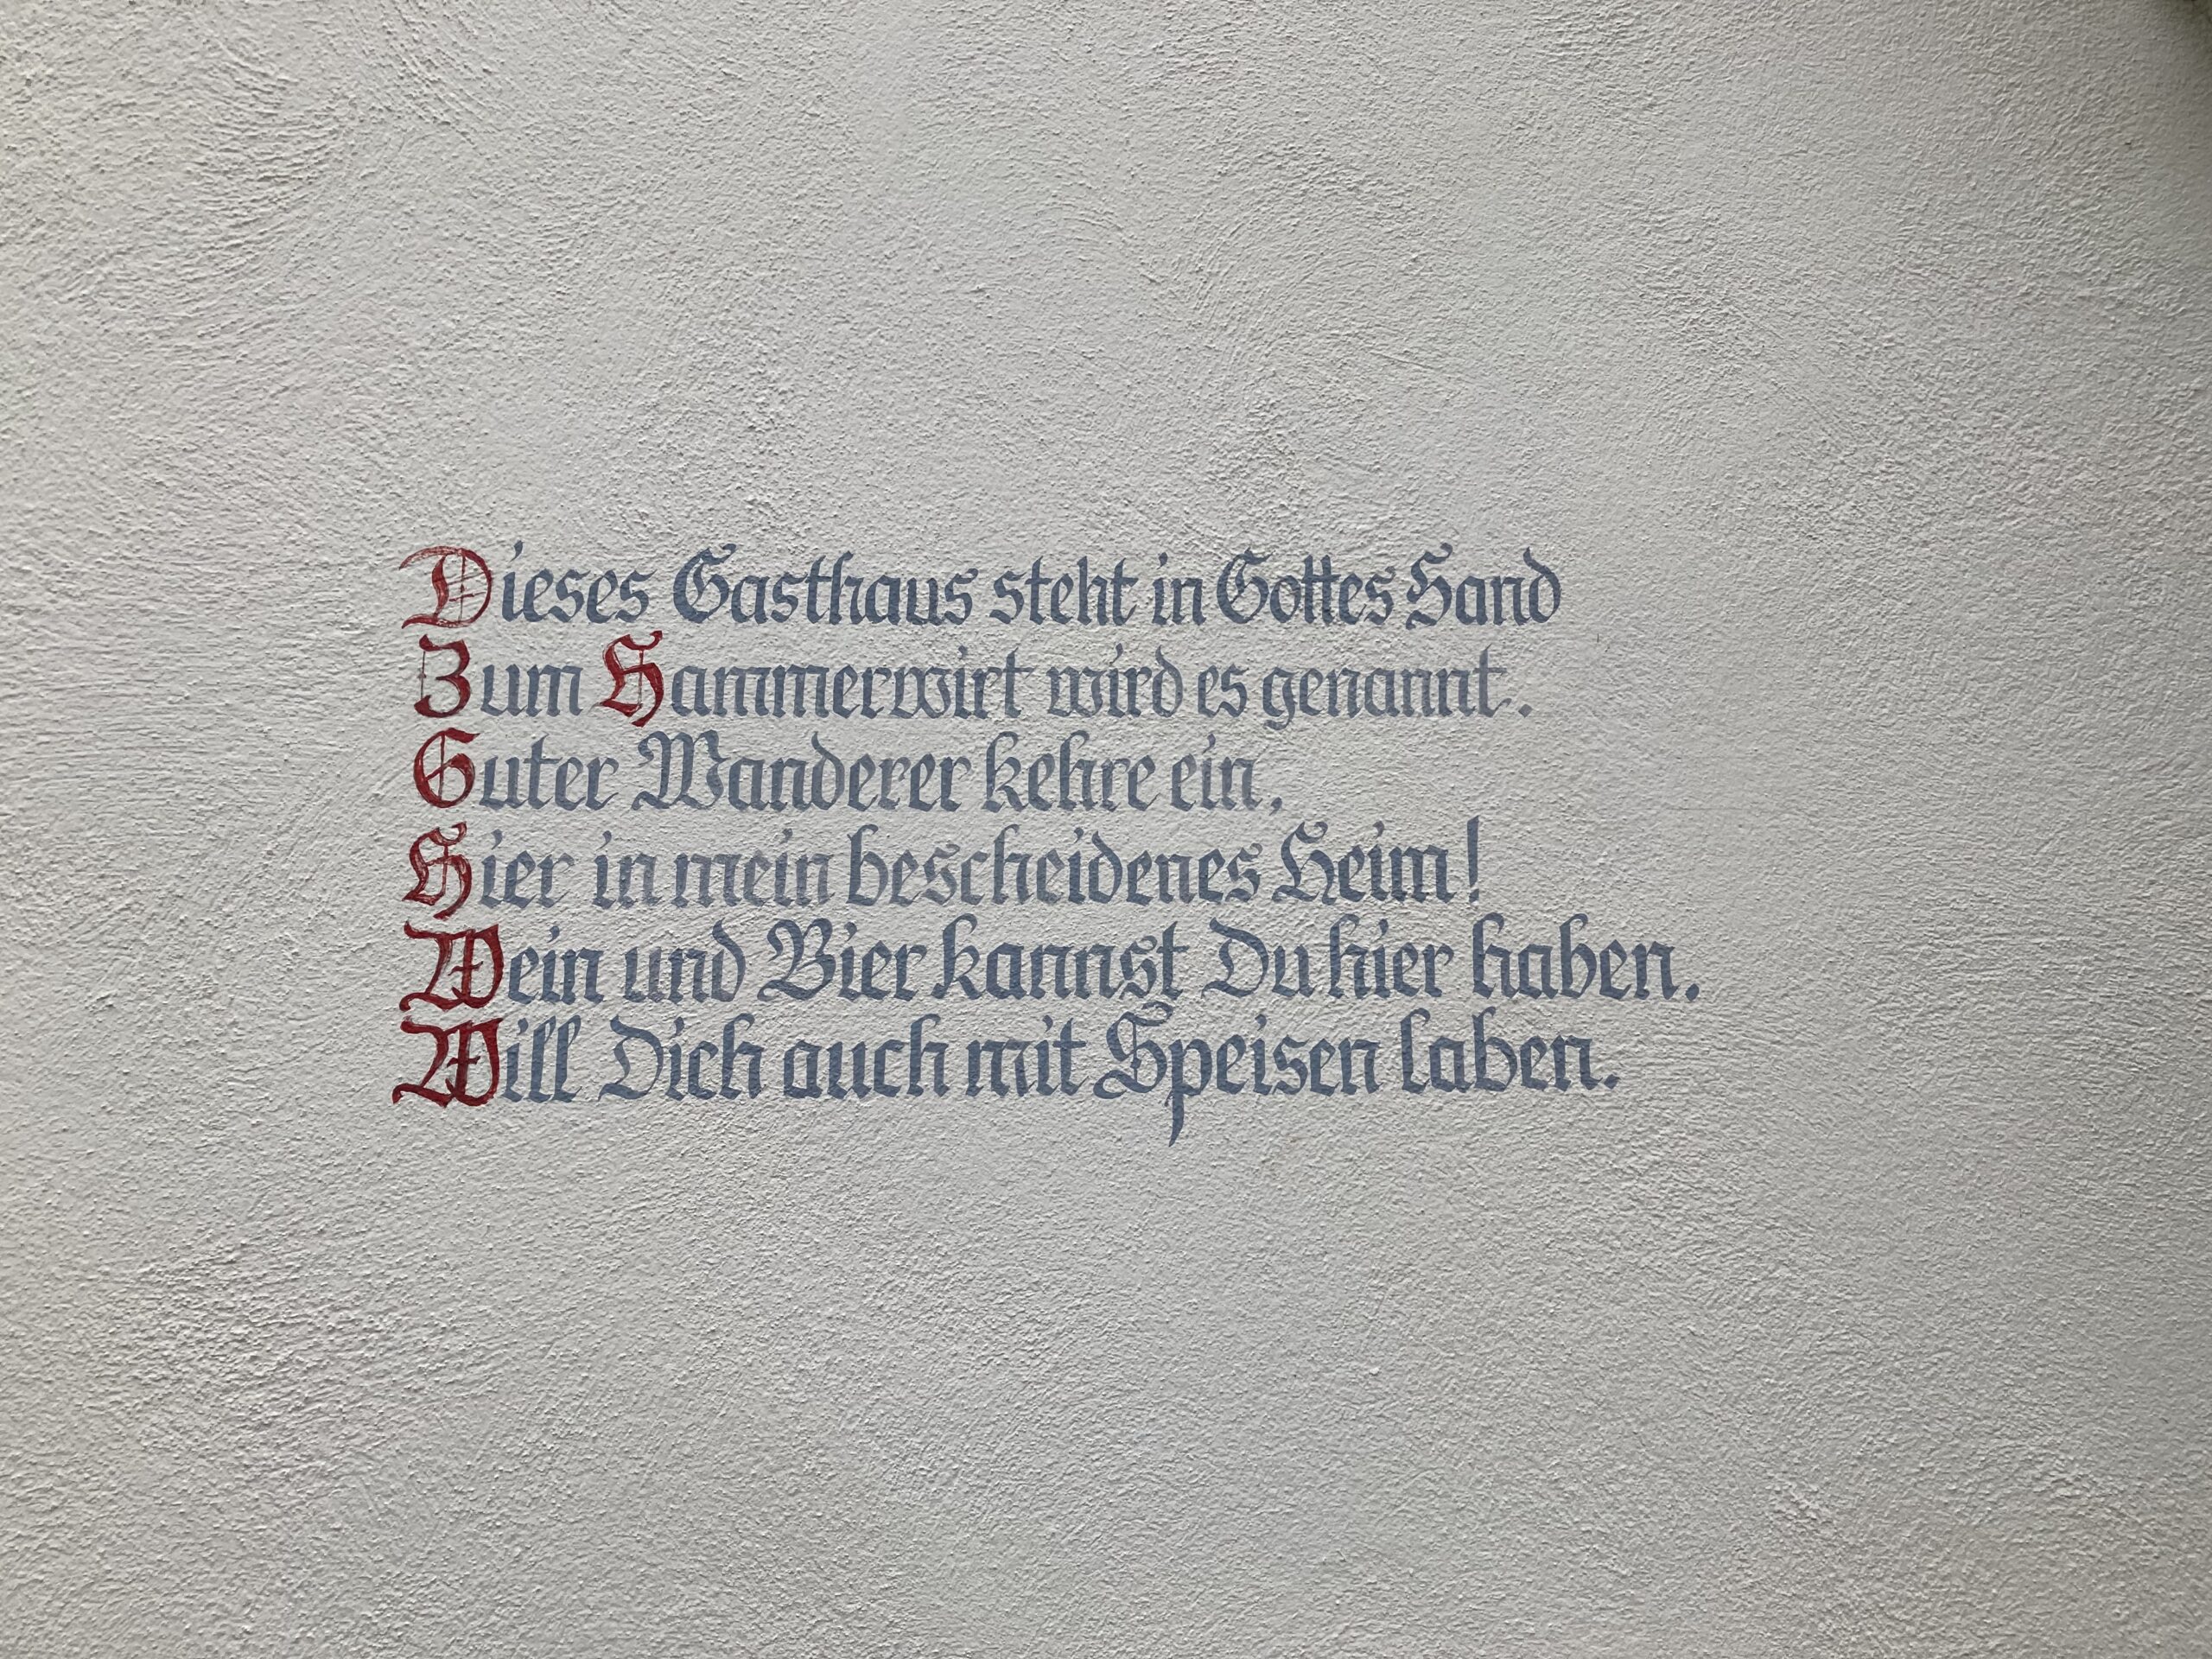 Dieses Gasthaus steht in Gottes Hand
Zum Hammerwirt wird es genannt.
Guter Wanderer kehre ein,
Hier in mein bescheidenes Heim!
Wein und Bier kannst Du hier haben.
Will Dich auch mit Speisen laben.